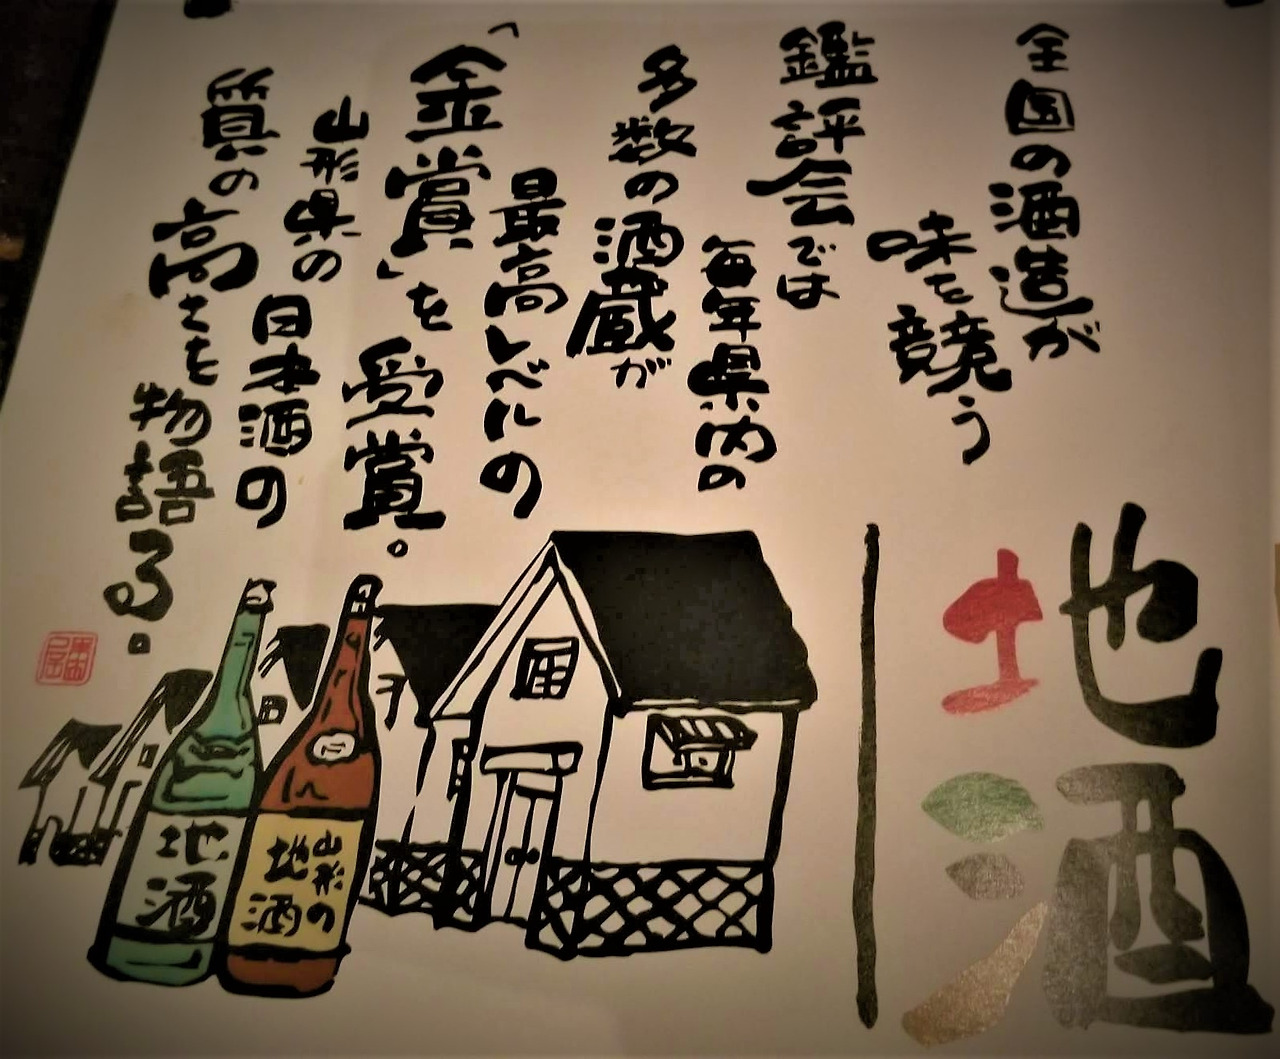 地酒
全国の酒造が
味を競う
鑑評会では
毎年県内の
多数の酒蔵が
最高レベルの
「金賞」を受賞。
山形県の
日本酒の
質の高さを
物語る。
山形の
地酒
地酒